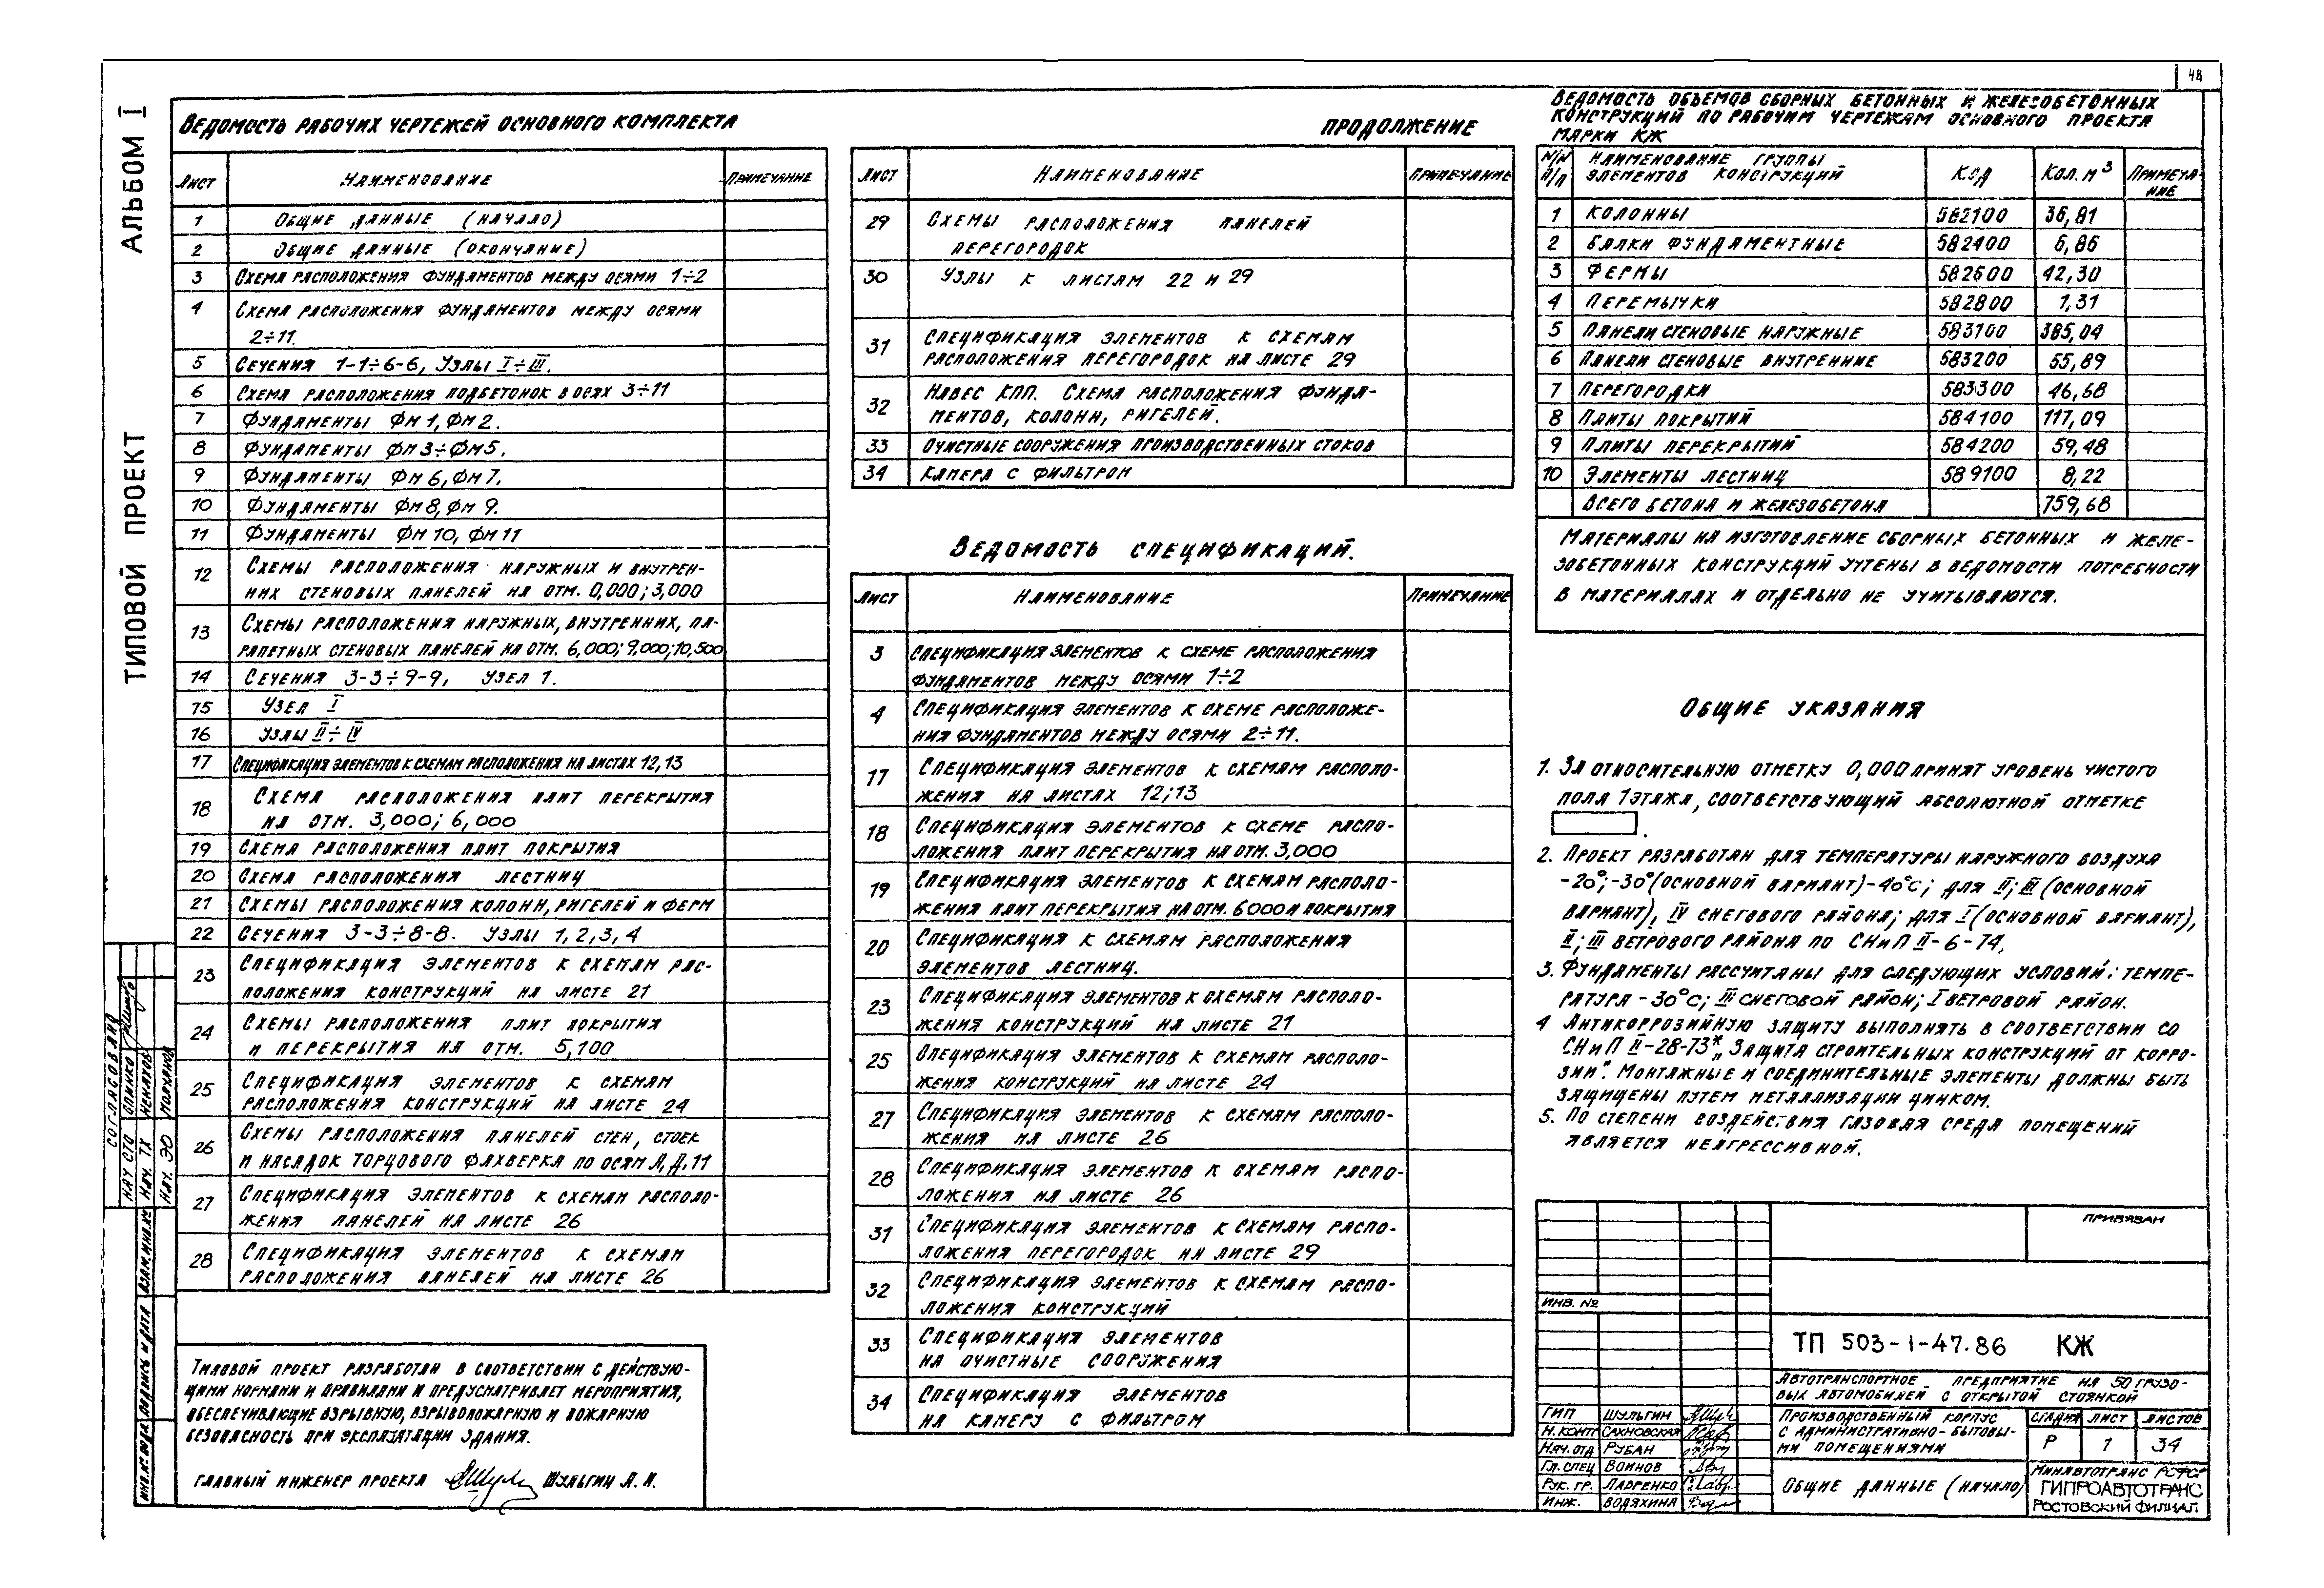 48
АЛЬБОМ I
ТИПОВОЙ ПРОЕКТ
ВЕДОМОСТЬ РАБОЧИХ ЧЕРТЕЖЕЙ ОСНОВНОГО КОМПЛЕКТА
ЛИСТ НАИМЕНОВАНИЕ ПРИМЕЧАНИЕ
1 ОБЩИЕ ДАННЫЕ (НАЧАЛО)
2 ОБЩИЕ ДАННЫЕ (ОКОНЧАНИЕ)
3 СХЕМА РАСПОЛОЖЕНИЯ ФУНДАМЕНТОВ МЕЖДУ ОСЯМИ 1÷2
4 СХЕМА РАСПОЛОЖЕНИЯ ФУНДАМЕНТОВ МЕЖДУ ОСЯМИ
2÷11.
5 СЕЧЕНИЯ 1-1÷6-6, УЗЛЫ I÷III.
6 СХЕМА РАСПОЛОЖЕНИЯ ПОДБЕТОНОК В ОСЯХ 3÷11
7 ФУНДАМЕНТЫ ФМ 1, ФМ 2.
8 ФУНДАМЕНТЫ ФМ 3÷ФМ5.
9 ФУНДАМЕНТЫ ФМ 6, ФМ 7.
10 ФУНДАМЕНТЫ ФМ 8, ФМ 9.
11 ФУНДАМЕНТЫ ФМ 10, ФМ 11
12 СХЕМЫ РАСПОЛОЖЕНИЯ НАРУЖНЫХ И ВНУТРЕН-
НИХ СТЕНОВЫХ ПАНЕЛЕЙ НА ОТМ. 0,000; 3,000
13 СХЕМЫ РАСПОЛОЖЕНИЯ НАРУЖНЫХ, ВНУТРЕННИХ, ПА-
РАПЕТНЫХ СТЕНОВЫХ ПАНЕЛЕЙ НА ОТМ. 6,000; 9,000; 10,500
14 СЕЧЕНИЯ 3-3÷9-9, УЗЕЛ 1.
15 УЗЕЛ I
16 УЗЛЫ II÷IV
17 СПЕЦИФИКАЦИЯ ЭЛЕМЕНТОВ К СХЕМАМ РАСПОЛОЖЕНИЯ НА ЛИСТАХ 12, 13
18 СХЕМА РАСПОЛОЖЕНИЯ ПЛИТ ПЕРЕКРЫТИЯ
НА ОТМ. 3,000; 6,000
19 СХЕМА РАСПОЛОЖЕНИЯ ПЛИТ ПОКРЫТИЯ
20 СХЕМА РАСПОЛОЖЕНИЯ ЛЕСТНИЦ
21 СХЕМЫ РАСПОЛОЖЕНИЯ КОЛОНН, РИГЕЛЕЙ И ФЕРМ
22 СЕЧЕНИЯ 3-3÷8-8. УЗЛЫ 1, 2, 3, 4
23 СПЕЦИФИКАЦИЯ ЭЛЕМЕНТОВ К СХЕМАМ РАС-
ПОЛОЖЕНИЯ КОНСТРУКЦИЙ НА ЛИСТЕ 21
24 СХЕМЫ РАСПОЛОЖЕНИЯ ПЛИТ ПОКРЫТИЯ
И ПЕРЕКРЫТИЯ НА ОТМ. 5,100
25 СПЕЦИФИКАЦИЯ ЭЛЕМЕНТОВ К СХЕМАМ
РАСПОЛОЖЕНИЯ КОНСТРУКЦИЙ НА ЛИСТЕ 24
26 СХЕМЫ РАСПОЛОЖЕНИЯ ПАНЕЛЕЙ СТЕН, СТОЕК
И НАСАДОК ТОРЦОВОГО ФАХВЕРКА ПО ОСЯМ А, Д, 11
27 СПЕЦИФИКАЦИЯ ЭЛЕМЕНТОВ К СХЕМАМ РАСПОЛО-
ЖЕНИЯ ПАНЕЛЕЙ НА ЛИСТЕ 26
28 СПЕЦИФИКАЦИЯ ЭЛЕМЕНТОВ К СХЕМАМ
РАСПОЛОЖЕНИЯ ПАНЕЛЕЙ НА ЛИСТЕ 26
ТИПОВОЙ ПРОЕКТ РАЗРАБОТАН В СООТВЕТСТВИИ С ДЕЙСТВУЮ-
ЩИМИ НОРМАМИ И ПРАВИЛАМИ И ПРЕДУСМАТРИВАЕТ МЕРОПРИЯТИЯ,
ОБЕСПЕЧИВАЮЩИЕ ВЗРЫВНУЮ, ВЗРЫВОПОЖАРНУЮ И ПОЖАРНУЮ
БЕЗОПАСНОСТЬ ПРИ ЭКСПЛУАТАЦИИ ЗДАНИЯ.
ГЛАВНЫЙ ИНЖЕНЕР ПРОЕКТА ШУЛЬГИН А. И.
ПРОДОЛЖЕНИЕ
ЛИСТ НАИМЕНОВАНИЕ ПРИМЕЧАНИЕ
29 СХЕМЫ РАСПОЛОЖЕНИЯ ПАНЕЛЕЙ
ПЕРЕГОРОДОК
30 УЗЛЫ К ЛИСТАМ 22 И 29
31 СПЕЦИФИКАЦИЯ ЭЛЕМЕНТОВ К СХЕМАМ
РАСПОЛОЖЕНИЯ ПЕРЕГОРОДОК НА ЛИСТЕ 29
32 НАВЕС КПП. СХЕМА РАСПОЛОЖЕНИЯ ФУНДА-
МЕНТОВ, КОЛОНН, РИГЕЛЕЙ.
33 ОЧИСТНЫЕ СООРУЖЕНИЯ ПРОИЗВОДСТВЕННЫХ СТОКОВ
34 КАМЕРА С ФИЛЬТРОМ
ВЕДОМОСТЬ СПЕЦИФИКАЦИЙ.
ЛИСТ НАИМЕНОВАНИЕ ПРИМЕЧАНИЕ
3 СПЕЦИФИКАЦИЯ ЭЛЕМЕНТОВ К СХЕМЕ РАСПОЛОЖЕНИЯ
ФУНДАМЕНТОВ МЕЖДУ ОСЯМИ 1÷2
4 СПЕЦИФИКАЦИЯ ЭЛЕМЕНТОВ К СХЕМЕ РАСПОЛОЖЕ-
НИЯ ФУНДАМЕНТОВ МЕЖДУ ОСЯМИ 2÷11.
17 СПЕЦИФИКАЦИЯ ЭЛЕМЕНТОВ К СХЕМАМ РАСПОЛО-
ЖЕНИЯ НА ЛИСТАХ 12; 13
18 СПЕЦИФИКАЦИЯ ЭЛЕМЕНТОВ К СХЕМЕ РАСПО-
ЛОЖЕНИЯ ПЛИТ ПЕРЕКРЫТИЯ НА ОТМ. 3,000
19 СПЕЦИФИКАЦИЯ ЭЛЕМЕНТОВ К СХЕМАМ РАСПОЛО-
ЖЕНИЯ ПЛИТ ПЕРЕКРЫТИЯ НА ОТМ. 6000 И ПОКРЫТИЯ
20 СПЕЦИФИКАЦИЯ К СХЕМАМ РАСПОЛОЖЕНИЯ
ЭЛЕМЕНТОВ ЛЕСТНИЦ.
23 СПЕЦИФИКАЦИЯ ЭЛЕМЕНТОВ К СХЕМАМ РАСПОЛО-
ЖЕНИЯ КОНСТРУКЦИЙ НА ЛИСТЕ 21
25 СПЕЦИФИКАЦИЯ ЭЛЕМЕНТОВ К СХЕМАМ РАСПОЛО-
ЖЕНИЯ КОНСТРУКЦИЙ НА ЛИСТЕ 24
27 СПЕЦИФИКАЦИЯ ЭЛЕМЕНТОВ К СХЕМАМ РАСПОЛО-
ЖЕНИЯ НА ЛИСТЕ 26
28 СПЕЦИФИКАЦИЯ ЭЛЕМЕНТОВ К СХЕМАМ РАСПО-
ЛОЖЕНИЯ НА ЛИСТЕ 26
31 СПЕЦИФИКАЦИЯ ЭЛЕМЕНТОВ К СХЕМАМ РАСПО-
ЛОЖЕНИЯ ПЕРЕГОРОДОК НА ЛИСТЕ 29
32 СПЕЦИФИКАЦИЯ ЭЛЕМЕНТОВ К СХЕМАМ РАСПО-
ЛОЖЕНИЯ КОНСТРУКЦИЙ
33 СПЕЦИФИКАЦИЯ ЭЛЕМЕНТОВ
НА ОЧИСТНЫЕ СООРУЖЕНИЯ
34 СПЕЦИФИКАЦИЯ ЭЛЕМЕНТОВ
НА КАМЕРУ С ФИЛЬТРОМ
ВЕДОМОСТЬ ОБЪЕМОВ СБОРНЫХ БЕТОННЫХ И ЖЕЛЕЗОБЕТОННЫХ
КОНСТРУКЦИЙ ПО РАБОЧИМ ЧЕРТЕЖАМ ОСНОВНОГО ПРОЕКТА
МАРКИ КЖ
N/N П/П НАИМЕНОВАНИЕ ГРУППЫ ЭЛЕМЕНТОВ КОНСТРУКЦИЙ КОД КОЛ. М3 ПРИМЕЧА-НИЕ
1 КОЛОННЫ 582100 36,81
2 БАЛКИ ФУНДАМЕНТНЫЕ 582400 6,86
3 ФЕРМЫ 582600 42,30
4 ПЕРЕМЫЧКИ 582800 1,31
5 ПАНЕЛИ СТЕНОВЫЕ НАРУЖНЫЕ 583100 385,04
6 ПАНЕЛИ СТЕНОВЫЕ ВНУТРЕННИЕ 583200 55,89
7 ПЕРЕГОРОДКИ 583300 46,68
8 ПЛИТЫ ПОКРЫТИЙ 584100 117,09
9 ПЛИТЫ ПЕРЕКРЫТИЙ 584200 59,48
10 ЭЛЕМЕНТЫ ЛЕСТНИЦ 589100 8,22
ВСЕГО БЕТОНА И ЖЕЛЕЗОБЕТОНА 759,68
МАТЕРИАЛЫ НА ИЗГОТОВЛЕНИЕ СБОРНЫХ БЕТОННЫХ И ЖЕЛЕ-
ЗОБЕТОННЫХ КОНСТРУКЦИЙ УЧТЕНЫ В ВЕДОМОСТИ ПОТРЕБНОСТИ
В МАТЕРИАЛАХ И ОТДЕЛЬНО НЕ УЧИТЫВАЮТСЯ.
ОБЩИЕ УКАЗАНИЯ
1. ЗА ОТНОСИТЕЛЬНУЮ ОТМЕТКУ 0,000 ПРИНЯТ УРОВЕНЬ ЧИСТОГО
ПОЛА 1 ЭТАЖА, СООТВЕТСТВУЮЩИЙ АБСОЛЮТНОЙ ОТМЕТКЕ
.
2. ПРОЕКТ РАЗРАБОТАН ДЛЯ ТЕМПЕРАТУРЫ НАРУЖНОГО ВОЗДУХА
-20°; -30° (ОСНОВНОЙ ВАРИАНТ) -40°С; ДЛЯ II; III (ОСНОВНОЙ
ВАРИАНТ), IV СНЕГОВОГО РАЙОНА; ДЛЯ I (ОСНОВНОЙ ВАРИАНТ),
II; III ВЕТРОВОГО РАЙОНА ПО СНиП II-6-74.
3. ФУНДАМЕНТЫ РАССЧИТАНЫ ДЛЯ СЛЕДУЮЩИХ УСЛОВИЙ: ТЕМПЕ-
РАТУРА -30°С; III СНЕГОВОЙ РАЙОН; I ВЕТРОВОЙ РАЙОН.
4 АНТИКОРРОЗИЙНУЮ ЗАЩИТУ ВЫПОЛНЯТЬ В СООТВЕТСТВИИ СО
СНиП II-28-73* „ЗАЩИТА СТРОИТЕЛЬНЫХ КОНСТРУКЦИЙ ОТ КОРРО-
ЗИИ". МОНТАЖНЫЕ И СОЕДИНИТЕЛЬНЫЕ ЭЛЕМЕНТЫ ДОЛЖНЫ БЫТЬ
ЗАЩИЩЕНЫ ПУТЕМ МЕТАЛЛИЗАЦИИ ЦИНКОМ.
5. ПО СТЕПЕНИ ВОЗДЕЙСТВИЯ ГАЗОВАЯ СРЕДА ПОМЕЩЕНИЙ
ЯВЛЯЕТСЯ НЕАГРЕССИВНОЙ.
ПРИВЯЗАН
ИНВ. №
ТП 503-1-47.86 КЖ
АВТОТРАНСПОРТНОЕ ПРЕДПРИЯТИЕ НА 50 ГРУЗО-
ВЫХ АВТОМОБИЛЕЙ С ОТКРЫТОЙ СТОЯНКОЙ
ГИП ШУЛЬГИН
Н. КОНТ САХНОВСКАЯ
НАЧ. ОТД РУБАН
ГЛ. СПЕЦ ВОИНОВ
РУК. ГР. ЛАВРЕНКО
ИНЖ. ВОДЯХИНА
ПРОИЗВОДСТВЕННЫЙ КОРПУС
С АДМИНИСТРАТИВНО-БЫТОВЫ-
МИ ПОМЕЩЕНИЯМИ
СТАДИЯ ЛИСТ ЛИСТОВ
Р 1 34
ОБЩИЕ ДАННЫЕ (НАЧАЛО)
МИНАВТОТРАНС РСФСР
ГИПРОАВТОТРАНС
РОСТОВСКИЙ ФИЛИАЛ
СОГЛАСОВАНО
НАЧ СТО
НАЧ. ТХ
НАЧ. ЭО
ВЗАМ. ИНВ. №
ПОДПИСЬ И ДАТА
ИНВ. № ПОДЛ